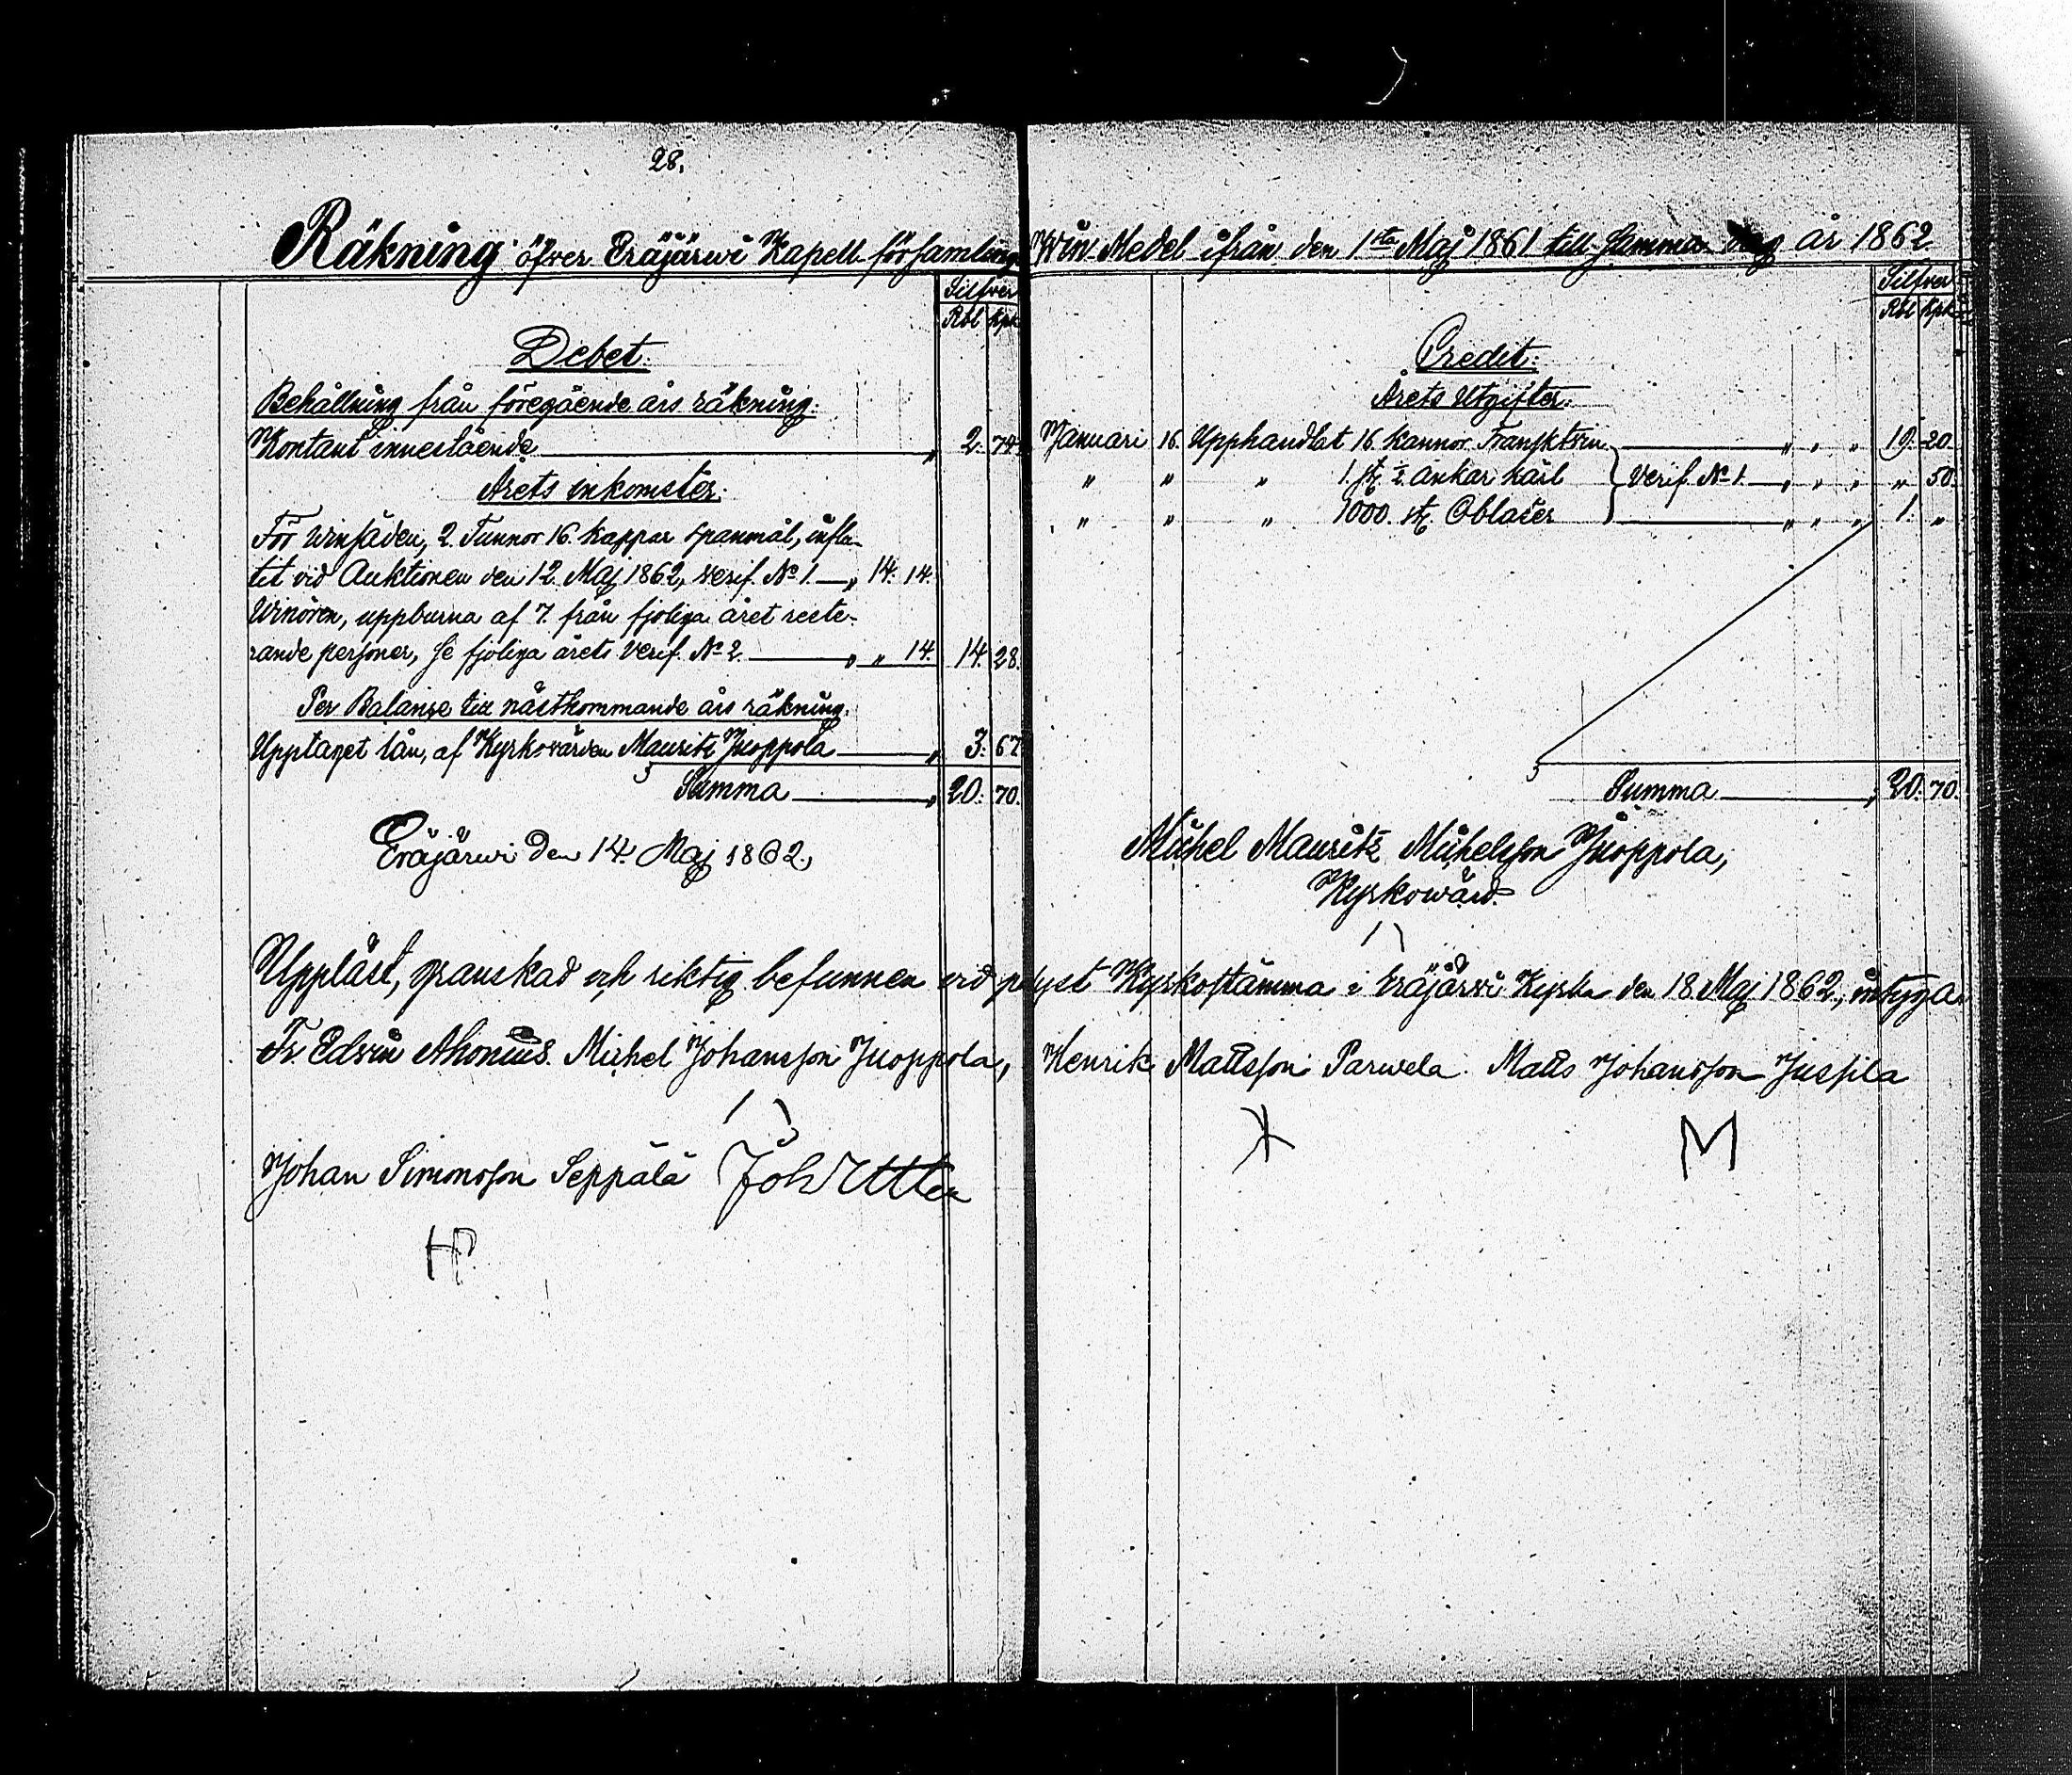 28.
Räkning öfver Eräjärwi Kapell-församlings Win-Medel ifrån den 1sta Maj 1861 till samma dag år 1862
Silfver
Rbl Kpk
Debet:
Behållning från föregående års räkning:
Kontant innestående „ 2. 74.
Årets inkomster:
För Winsäden, 2. Tunnor 16. kappar spanmål, influ-
tit vid Auktionen den 12. Maj 1862, verif. No 1. „ 14. 14.
Winören, uppburna af 7. från fjoliga året reste-
rande personer, se fjoliga årets verif. No 2. „ „ 14. 14. 28.
Per Balance till nästkommande års räkning.
Upptaget lån, af Kyrkovärden Mauritz Juoppola „ 3. 67.
Summa „ 20. 70.
Eräjärwi den 14. Maj 1862.
Silfver
Rbl Kpk
Credit:
Årets Utgifter:
Januari 16. Upphandlat 16. kannor Fransktvin „ „ „ 19. 20.
„ „ „ 1. st. ½ ankar kärl } Verif. No 1. „ „ „ „ 50.
„ „ „ 1000. st. Oblater „ „ „ 1. „
Summa „ 20. 70.
Michel Mauritz Michelsson Juoppola,
Kyrkowärd.
Uppläst, granskad och riktig befunnen vid pålyst Kyrkostämma i Eräjärvi Kyrka den 18. Maj 1862, intyga
Fr. Edvin Ahonius. Michel Johansson Juoppola, Henrik Mattsson Parwela. Matts Johansson Jussila
M
Johan Simonsson Seppälä Joh Utter
HP